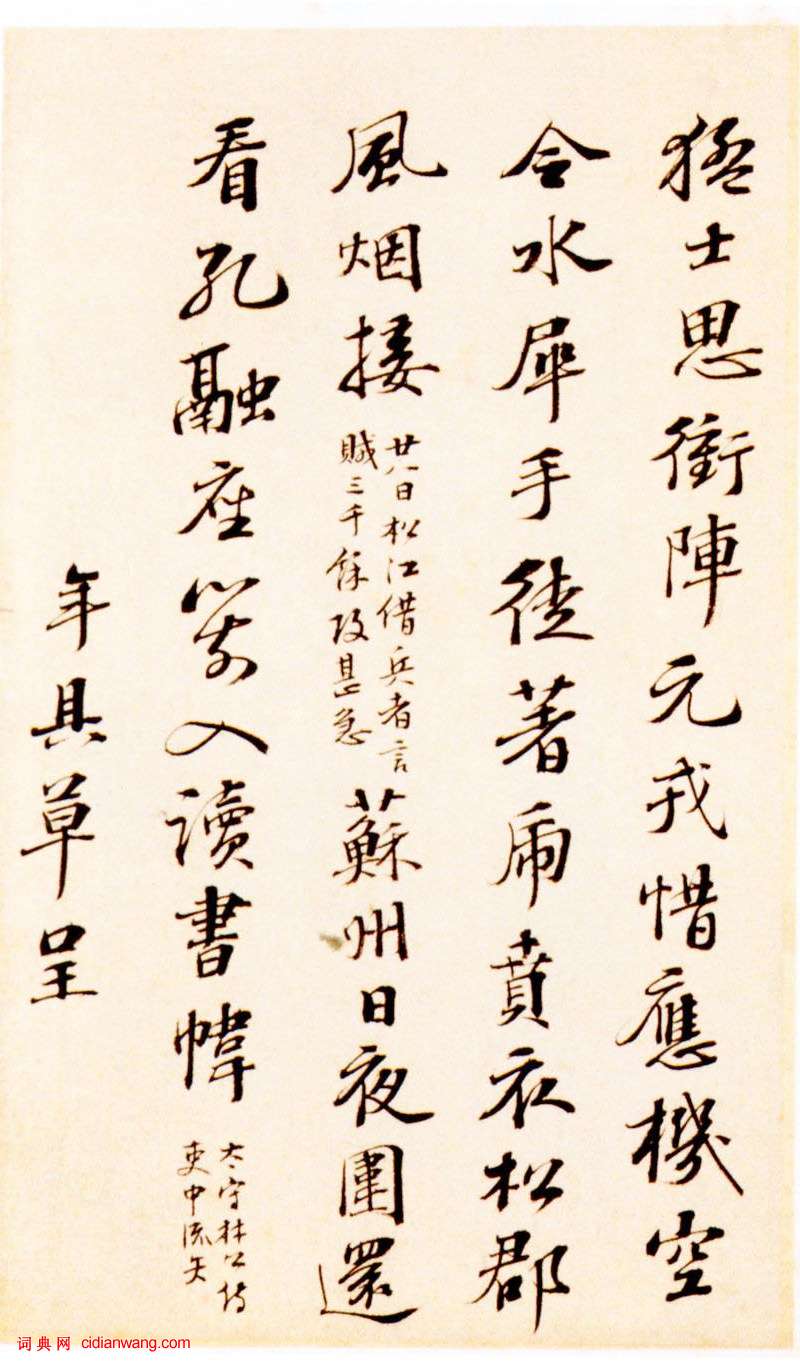 猛士思衝陣元戎惜應機空
令水犀手徒著虎賁衣松郡
風烟接
廿八日松江借兵者言
賊三千餘攻甚急
蘇州日夜圍還
看孔融座箭入讀書幃
太守林公侍
吏中流矢
年具草呈
词典网 cidianwang.com